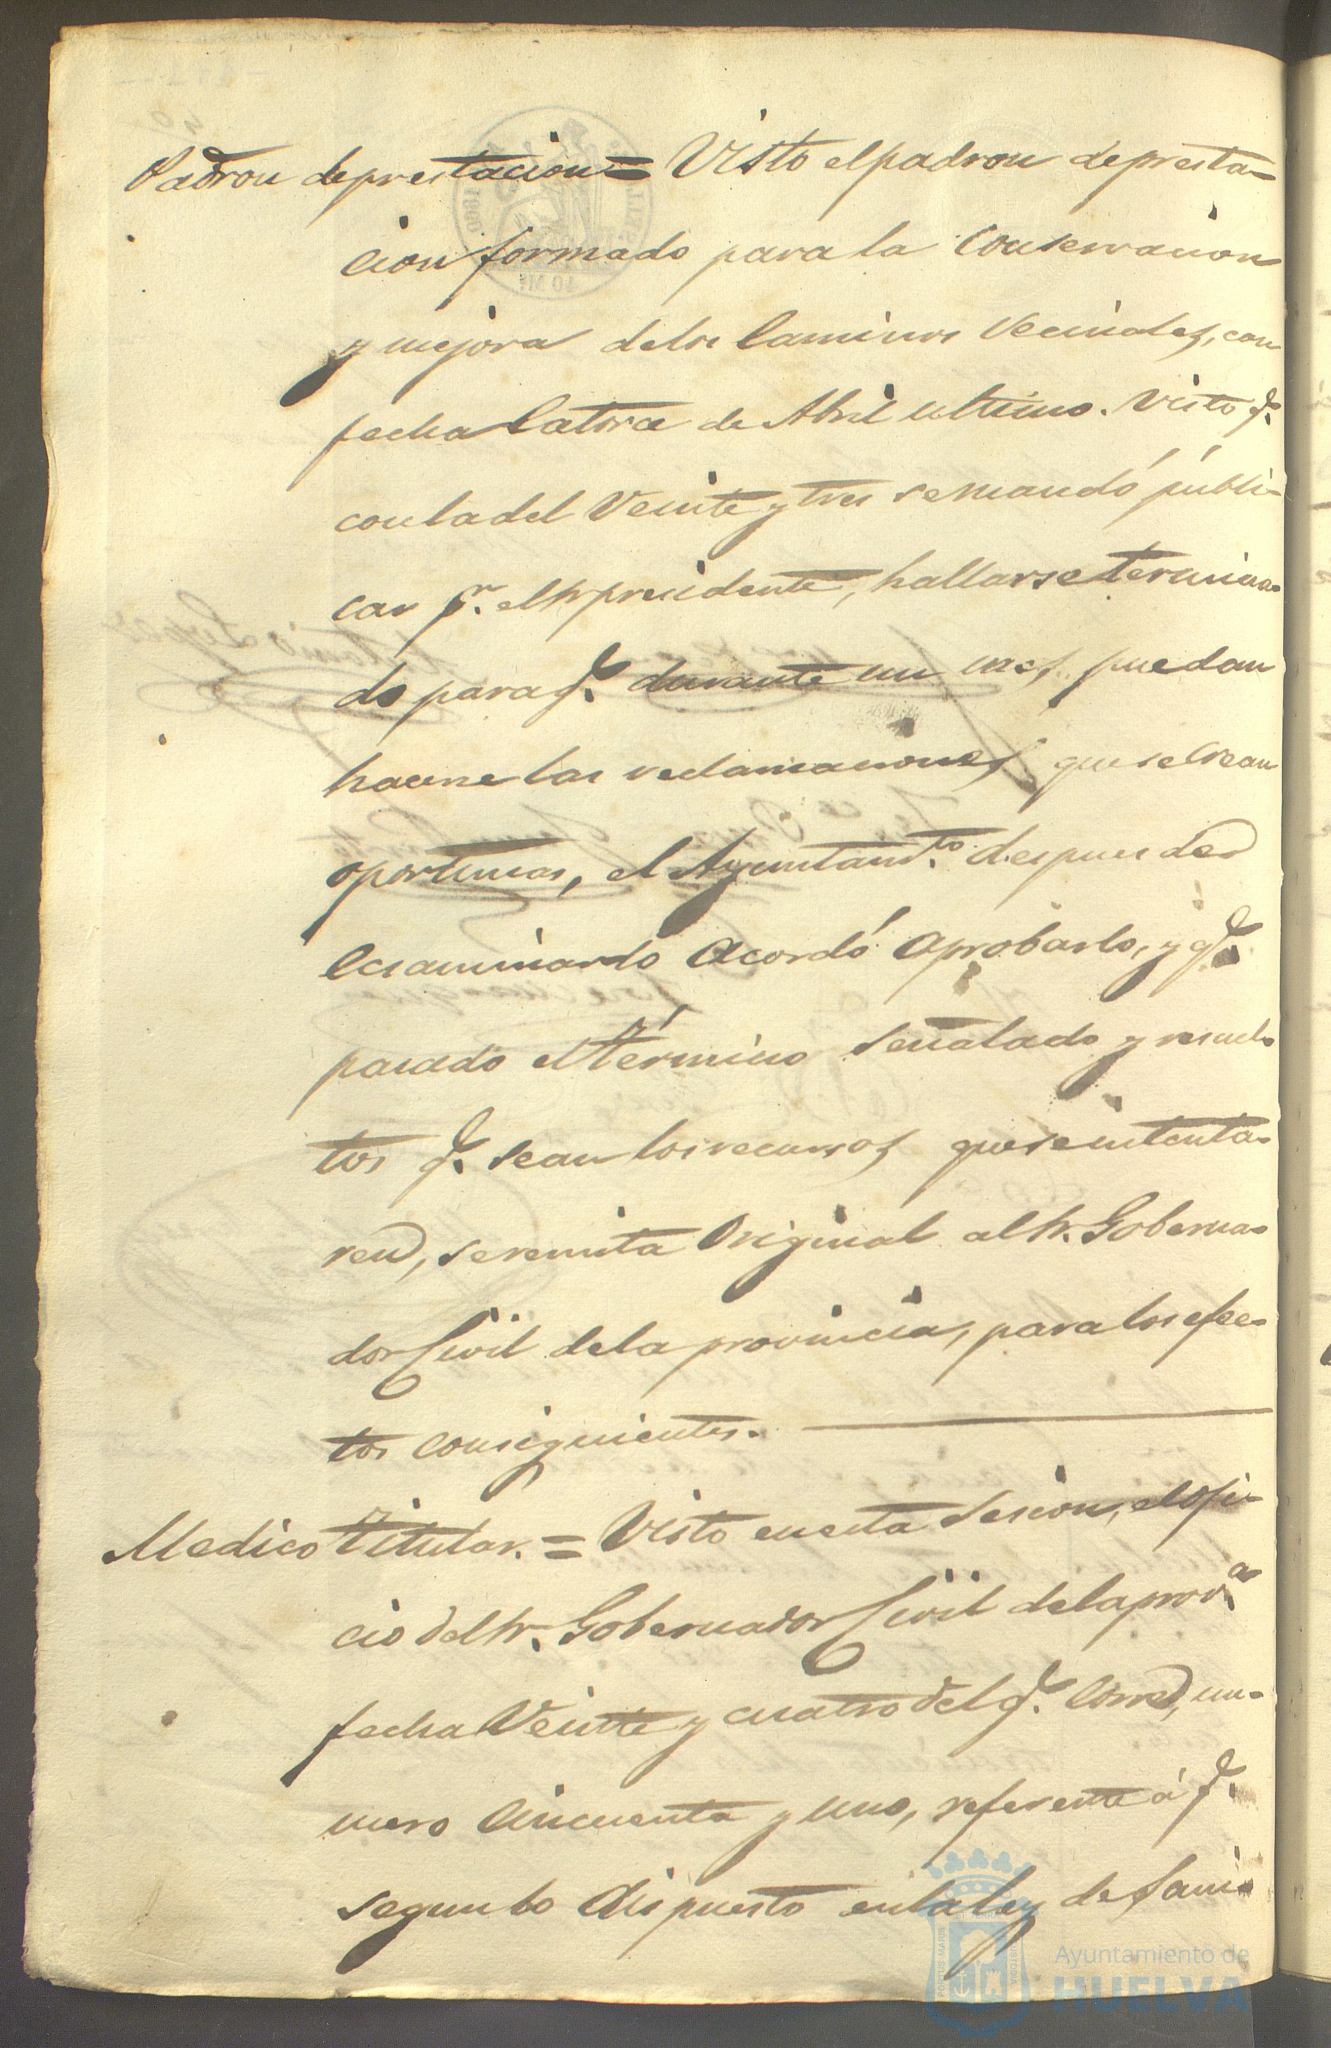 Padron de prestacion = Visto el padron de presta-
cion formado para la conservacion
y mejora delos Caminos Vecinales, con
fecha Catorce de Abril ultimo. Visto q.
con la del Veinte y tres se mandó públi-
car p.r el Sr presidente, hallarse termina-
do para q. durante un mes, puedan
hacerse las reclamaciones que se crean
oportunas, el Ayuntam.to despues de
ecsaminarlo acordó aprobarlo, y q.
pasado el término señalado y resuel-
tos q. sean los recursos que se intenta-
ren, se remita Original al Sr. Goberna-
dor Civil dela provincia, para los efec-
tos consiguientes.
Medico titular. = Visto en esta Sesion, el ofi-
cio del Sr. Gobernador Civil dela prov.a
fecha Veinte y cuatro del q. corre, nu-
mero Cincuenta y uno, referente á q.
segun lo dispuesto en la ley de Sani-
Ayuntamiento de
HUELVA